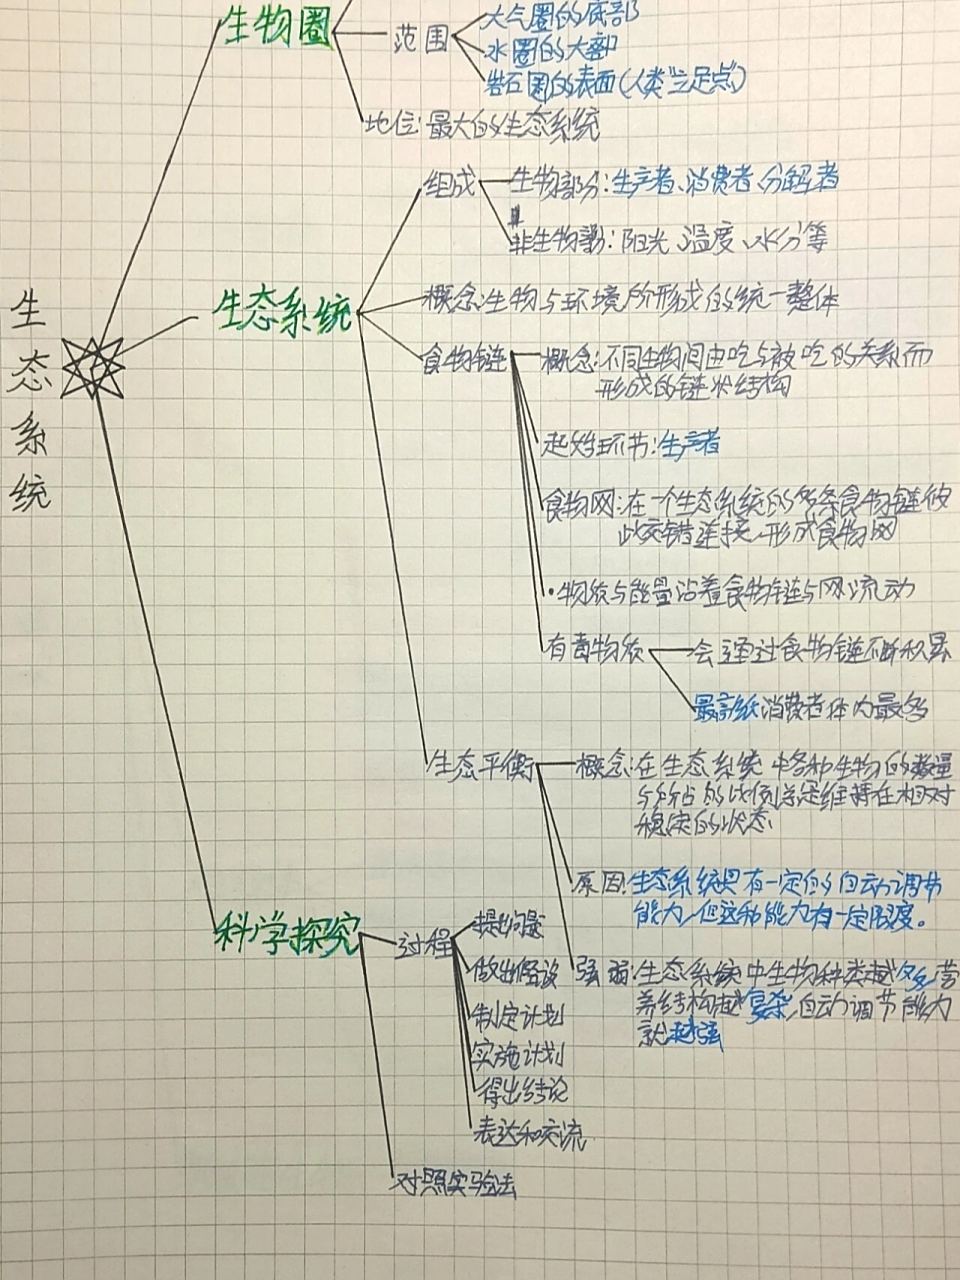 生态系统
生物圈
范围
大气圈的底部
水圈的大部
岩石圈的表面(人类"立足点)
地位:最大的生态系统
生态系统
组成
生物部分:生产者、消费者、分解者
非生物部分:阳光、温度、水分等
概念:生物与环境所形成的统一整体
食物链
概念:不同生物间由吃与被吃的关系而
形成的链状结构
起始环节:生产者
食物网:在一个生态系统的多条食物链彼
此交错连接,形成食物网
·物质与能量沿着食物链与网流动
有毒物质
会通过食物链不断积累
最高级消费者体内最多
生态平衡
概念:在生态系统中各种生物的数量
与所占的比例总是维持在相对
稳定的状态
原因:生态系统具有一定的自动调节
能力,但这种能力有一定限度。
强弱:生态系统中生物种类越多,营
养结构越复杂,自动调节能力
就越强
科学探究
过程
提出问题
做出假设
制定计划
实施计划
得出结论
表达和交流
对照实验法